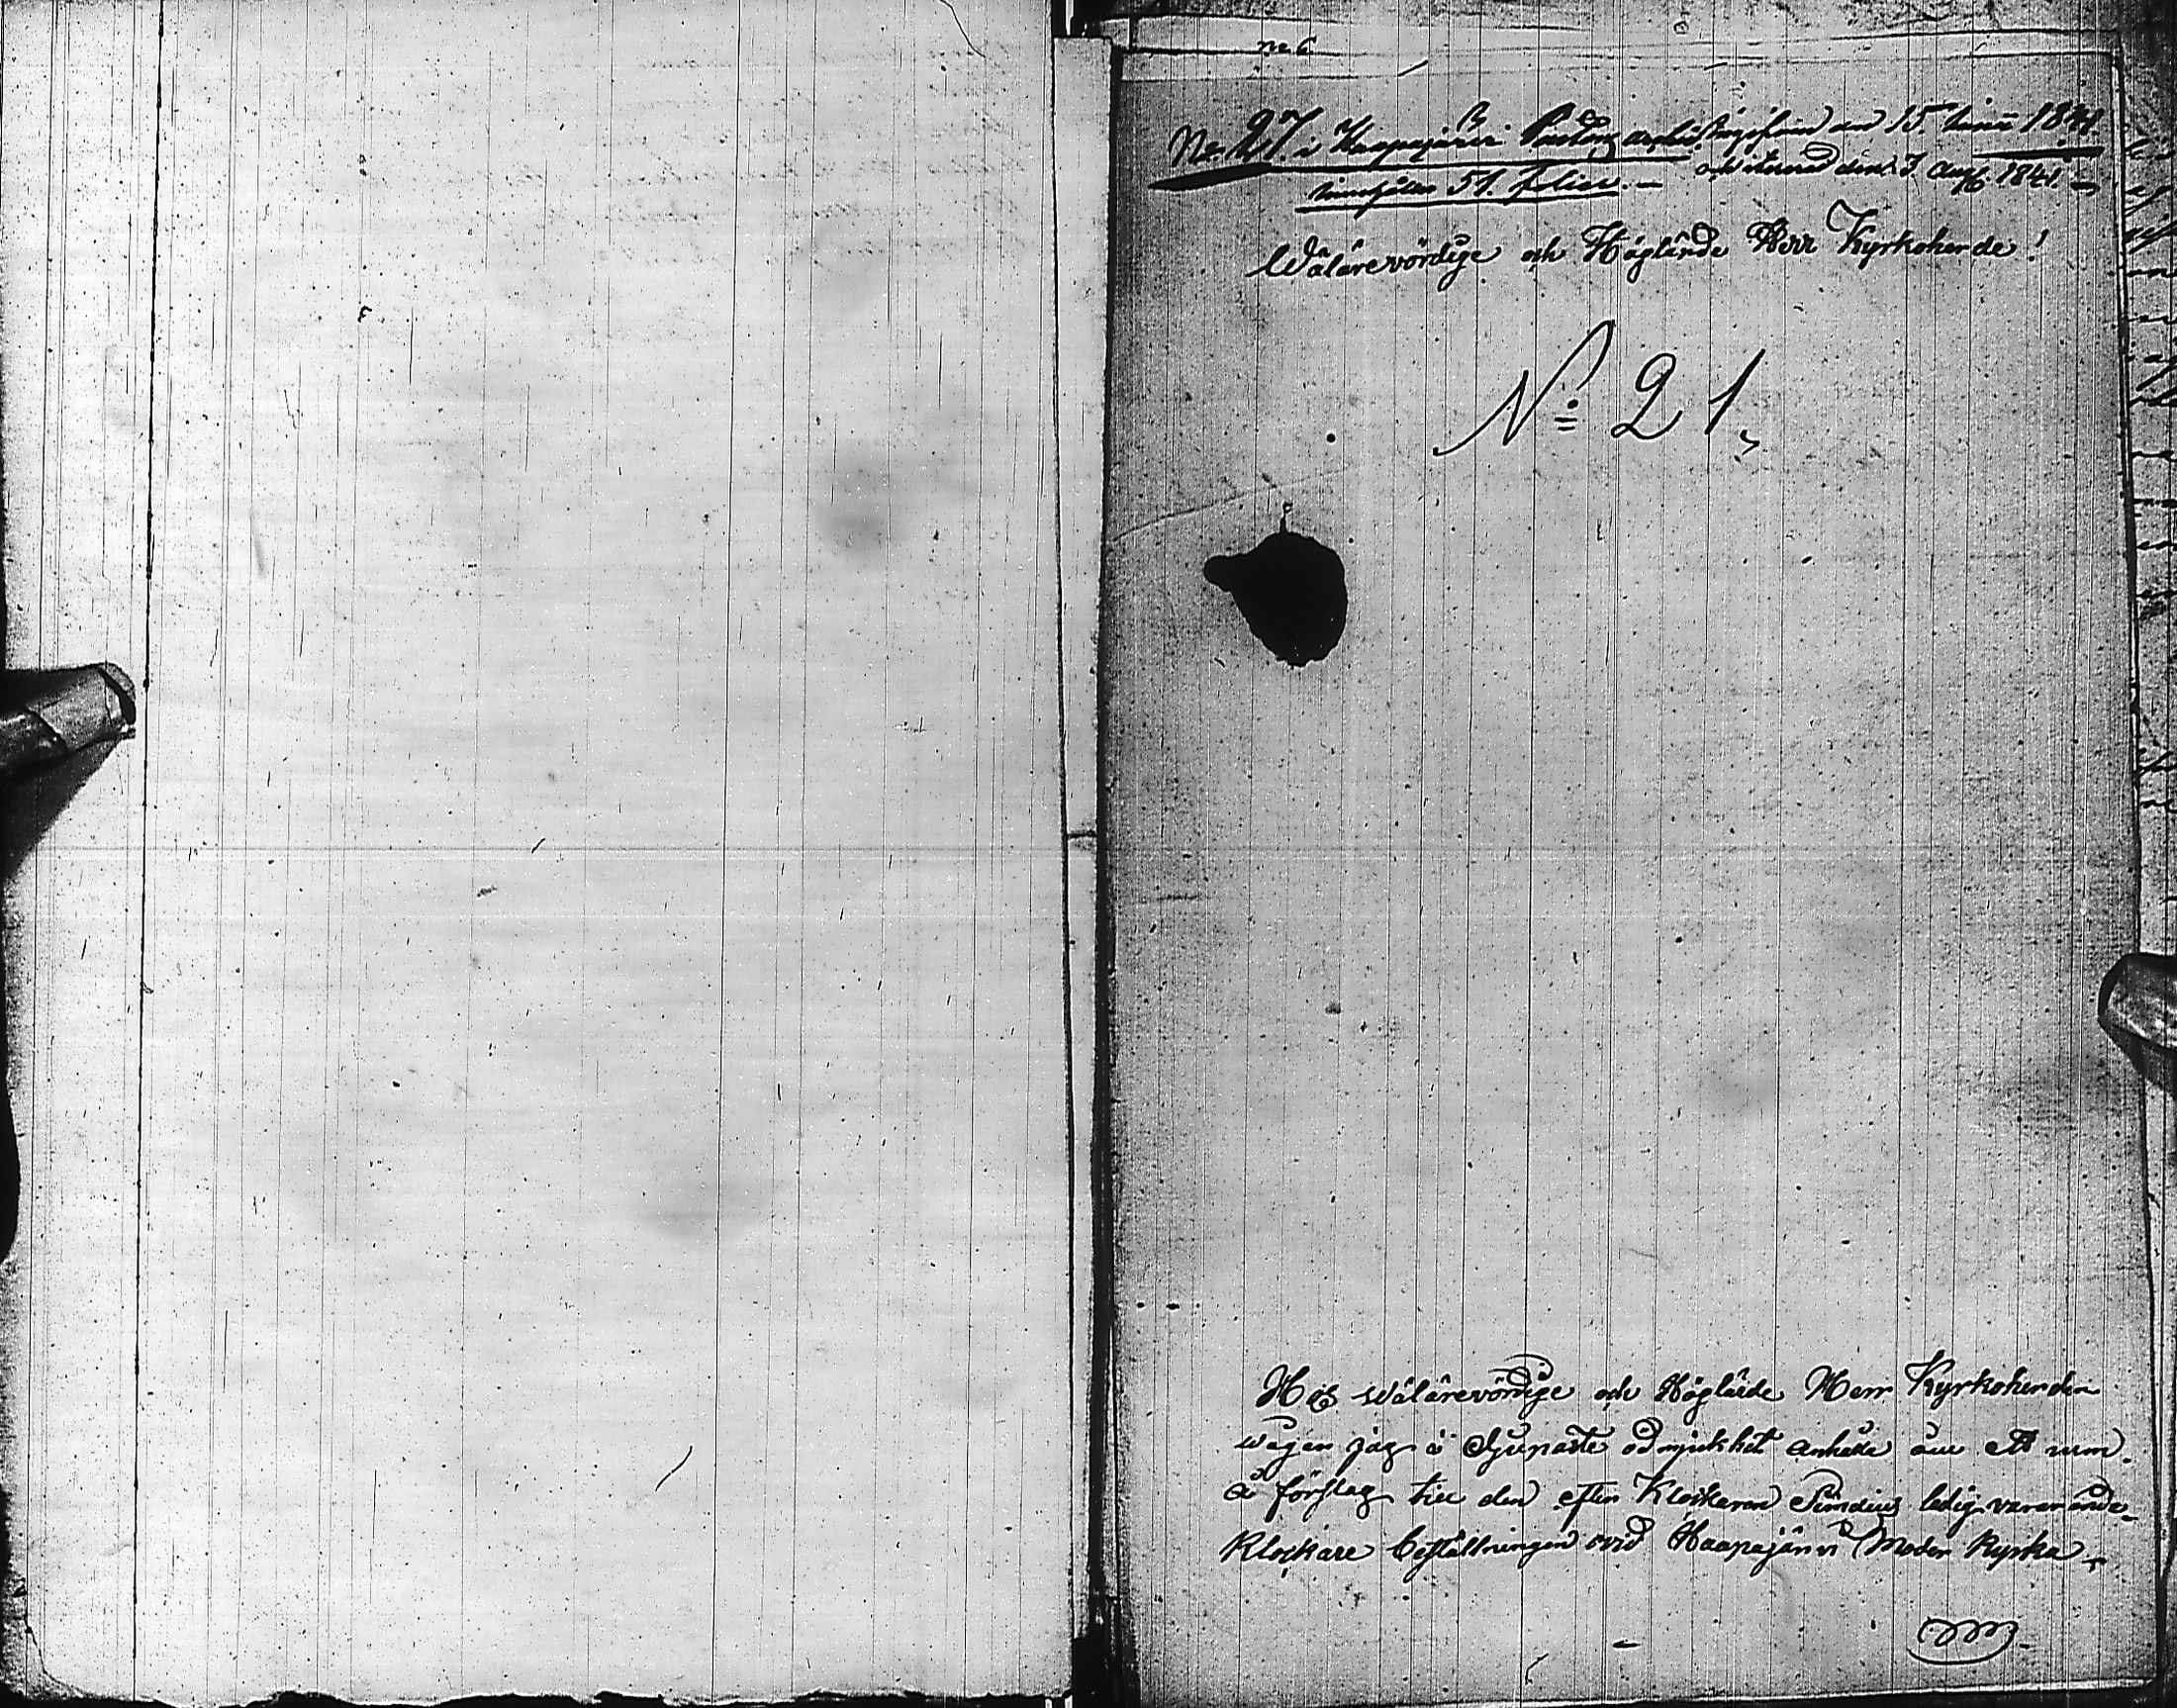 no 6
No. 27. i Haapajärvi Pastors archiv ingifvin den 15. Junii 1841.
innehåller 51. folier. — och itererad den 3 Aug. 1841. —
Wälärevördige och Höglärde Herr Kyrkoherde!
No 21,
Hos Wälärevördige och Höglärde Herr Kyrkoherden
wågar jag i djupaste ödmjukhet anhålla om ett rum
å förslag till den efter Klockaren Sundius ledig varande
Klockare beställningen wid Haapajärvi Moder Kyrka